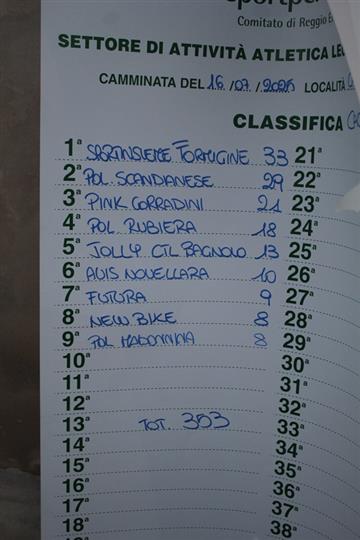 Comitato di Reggio E
SETTORE DI ATTIVITÀ ATLETICA LE
CAMMINATA DEL 16/07/2025 LOCALITÀ
CLASSIFICA
1ª SPORTINSIEME FORMIGINE 33 21ª
2ª POL SCANDIANESE 29 22ª
3ª PINK CORRADINI 21 23ª
4ª POL RUBIERA 18 24ª
5ª JOLLY CTL BAGNOLO 13 25ª
6ª AVIS NOVELLARA 10 26ª
7ª FUTURA 9 27ª
8ª NEW BIKE 8 28ª
9ª POL MADONNINA 8 29ª
10ª 30ª
11ª 31ª
12ª 32ª
13ª TOT. 303 33ª
14ª 34ª
15ª 35ª
16ª 36ª
17ª 37ª
18ª 38ª